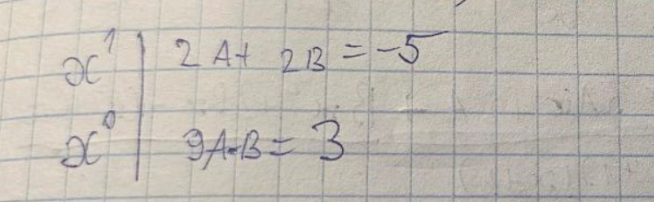 x¹ | 2A+ 2B = -5
x⁰ | 9A-B = 3